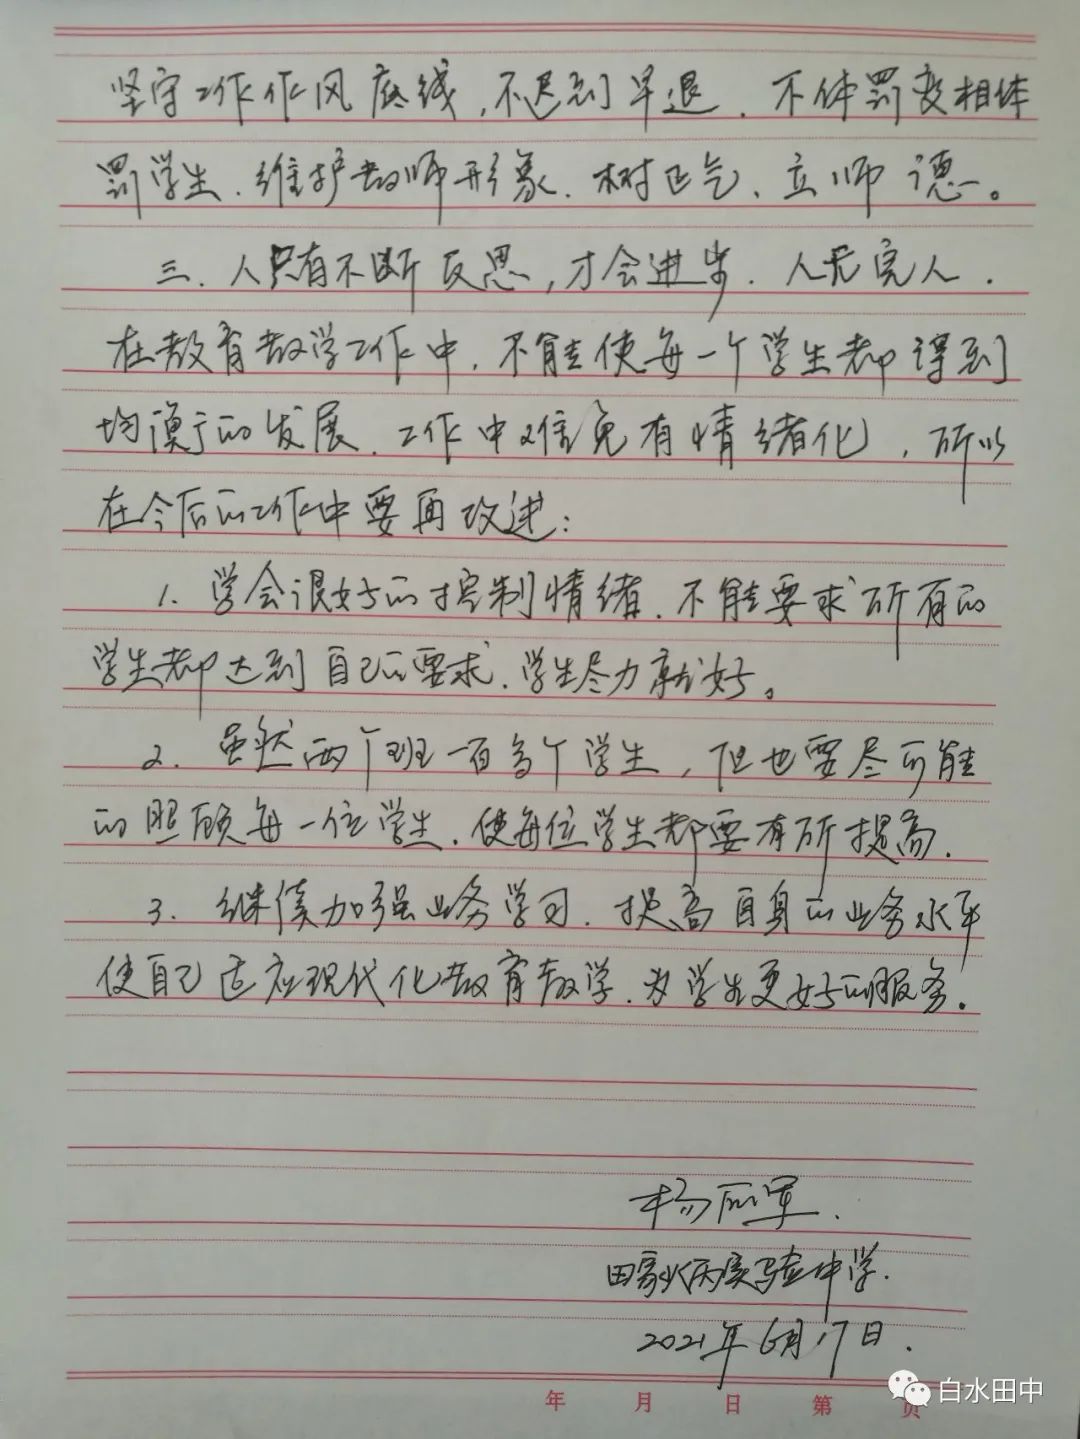 坚守工作作风底线,不迟到早退、不体罚变相体
罚学生、维护教师形象、树正气、立师德。
三、人只有不断反思,才会进步、人无完人.
在教育教学工作中,不能使每一个学生都得到
均衡的发展、工作中难免有情绪化,所以
在今后的工作中要再改进:
1、学会很好的控制情绪、不能要求所有的
学生都达到自己的要求、学生尽力就好。
2、虽然两个班一百多个学生,但也要尽可能
的照顾每一位学生、使每位学生都要有所提高.
3、继续加强业务学习、提高自身的业务水平
使自己适应现代化教育教学、为学生更好的服务。
杨 军.
田家炳实验中学.
2021年6月17日.
年 月 日 第 页
白水田中